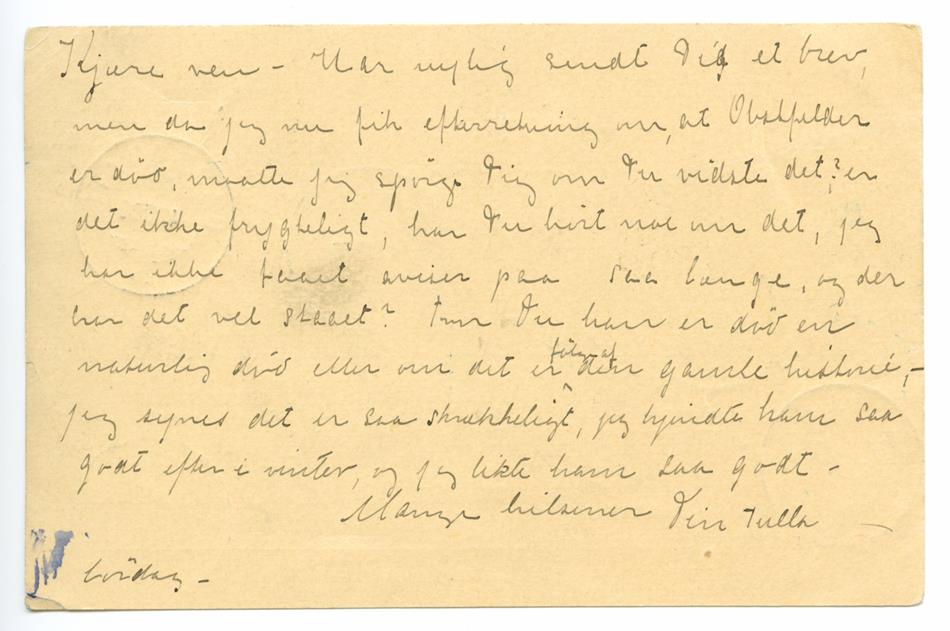 Kjære ven – Har nylig sendt Dig et brev,
men da jeg nu fik efterretning om, at Obstfelder
er død, maatte jeg spörge Dig om Du vidste det,? er
det ikke frygteligt, har Du hört noe om det, jeg
har ikke faaet aviser paa saa længe, og der
har det vel staaet? Tror Du han er död en
naturlig död eller om det er fölge af den gamle historie, –
jeg synes det er saa skrækkeligt, jeg kjendte ham saa
godt efter i vinter, og jeg likte ham saa godt –
Mange hilsener Din Tulla
lördag –